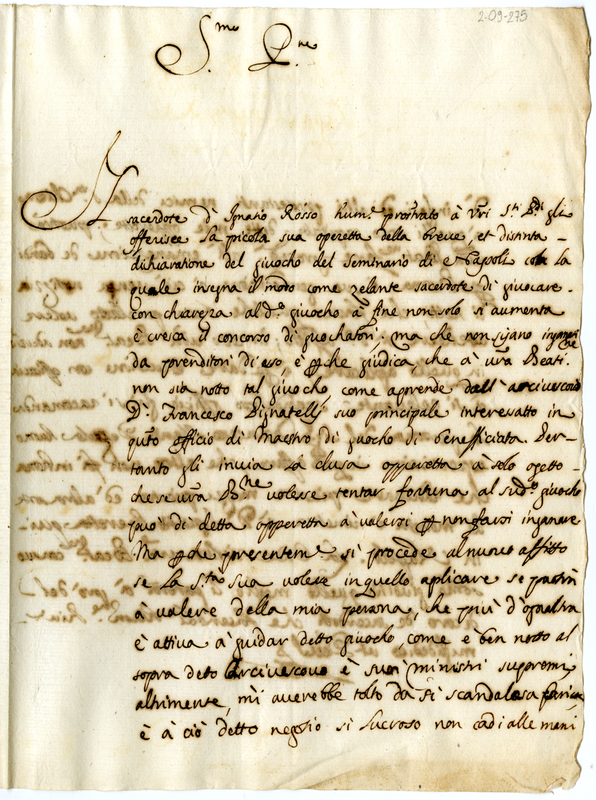 2-09-275
S.mo P.ne
Il
sacerdote D. Ignatio Rosso hum.e prostrato à V.ri S.ti P.di gli
offerisce la picola sua operetta della breve, et distinta –
dichiaratione del giuocho del seminario di Napoli con la
quale insegna il modo come zelante sacerdote di giuocare
con chiareza al d.o giuocho à fine non solo si aumenta
è cresca il concorso di giuochatori, ma che non sijano inganati
da prenditori di esso, è perche giudica, che à v.ra Beati.ne
non sia notto tal giuocho, come aprende dall'arcivescovo
D. Francesco Pignatellj suo principale interessatto in
q.sto officio di Maestro di giuocho di beneficiata. Per–
tanto gli invia la clusa opperetta à solo ogetto –
che se v.ra B.ne volesse tentar fortuna al sud.o giuocho
può di detta opperetta à valersi per non farsi inganare
Ma perche presentem.e si procede al nuovo affitto
se la S.tà sua volesse in quello aplicare se potrà
à valere della mia persona, che più d'ogn'altra
è attiva à guidar detto giuocho, come è ben notto al
sopra deto Arcivescovo è suoi ministri supremi
altrimente, mi averebbe tolto da sì scandalosa
è à ciò detto negosio sì lucroso non cadi alle mani